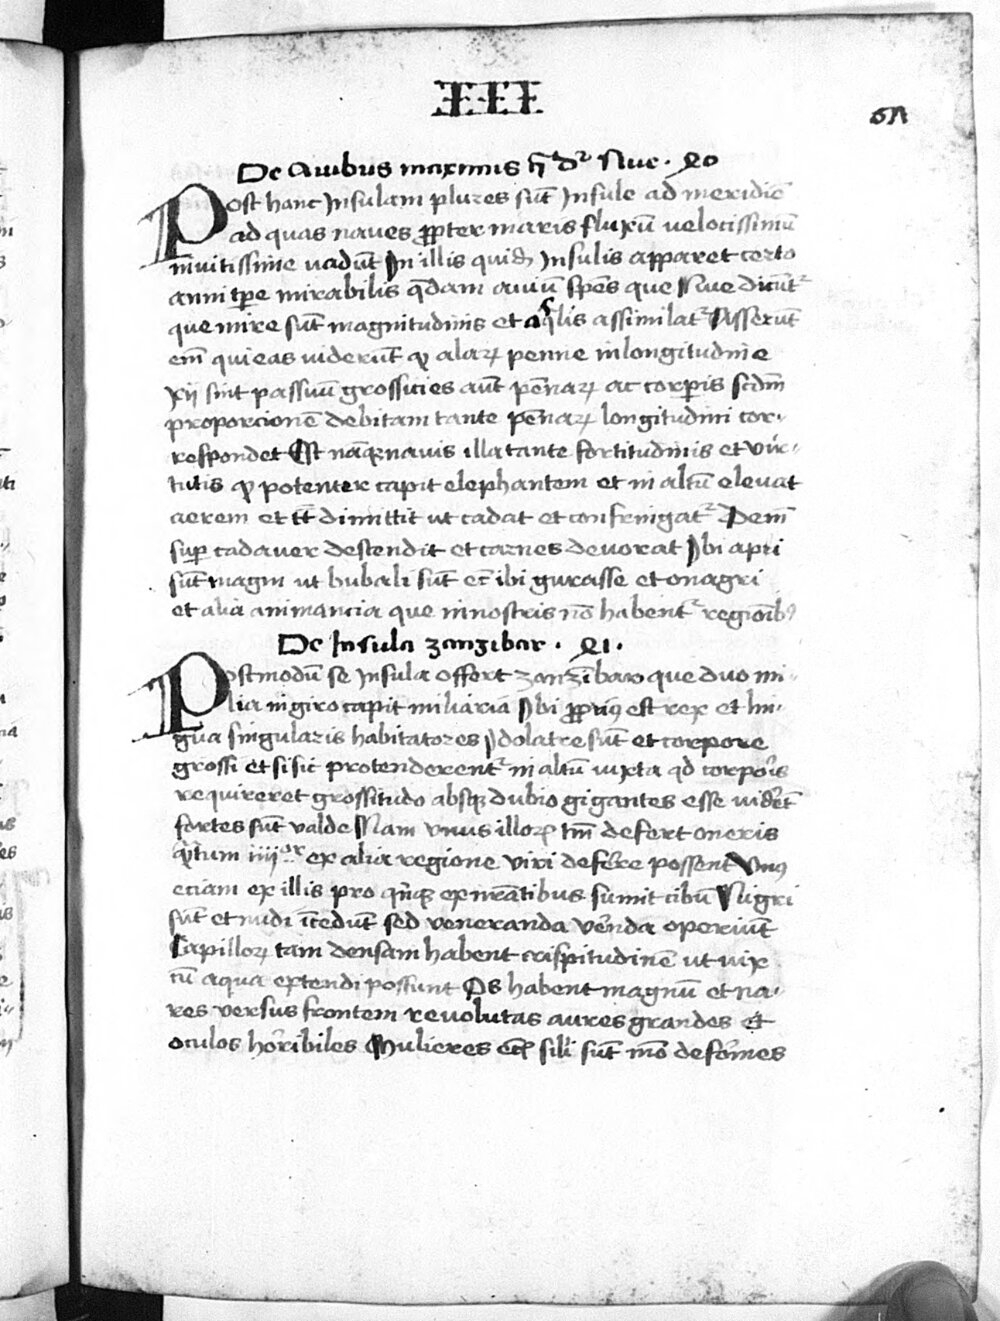 III
61
De Avibus maximis q̄ dr̄ Ruc . 40
Post hanc Insulam plures sūt Insule ad meridiē
ad quas naves ꝓpter maris fluxū velocissimū
īnvitissime vadūt In illis quidē Insulis apparet certo
anni tꝑe mirabilis q̄dam aviū spēs que Ruc dicūtr̄
que mire sūt magnitudinis et aq̄lis assimilatr̄ Asserūt
em̄ qui eas viderūt qꝫ alaꝝ penne in longitudine
xij sint passuū grossicies aūt pēnaꝝ ac corꝑis scdm̄
proporcionē debitam tante pēnaꝝ longitudini cor-
respondet Est nāqꝫ navis illa tante fortitudinis et vir-
tutis qꝫ potenter capit elephantem et in altū elevat
aerem et tt̄ dimittit ut cadat et confringatr̄ Deīn
suꝑ cadaver descendit et carnes devorat Ibi apri
sūt magni ut bubali sūt ec̄ ibi girasse et onagri
et alia animancia que in nostris nō habentr̄ regionibꝰ
De Insula zanzibar . 41 .
Postmodū se Insula offert zanzībar que duo mi-
lia in giro capit miliaria Ibi ꝓpriꝰ est rex et lin-
gua singularis habitatores Idolatre sūt et corpore
grossi et si sic protenderentr̄ in altū iuxta qd corporis
requireret grossitudo absqꝫ dubio gigantes esse vidēt
fortes sūt valde Nam vnus illoꝝ tm̄ defert oneris
q̄ntum iiijor ex alia regione viri deferre possent Vnꝰ
eciam ex illis pro qn̄qꝫ ex nr̄atibus sumit cibū Nigri
sūt et nudi īcedūt sed veneranda verēda operiūt
Capilloꝝ tam densam habent crispitudinē ut vix
cū aqua extendi possunt Os habent magnū et na-
res versus frontem revolutas aures grandes et
oculos horribiles Mulieres ec̄ silī sūt mō deformes